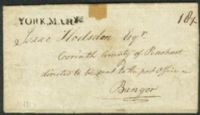 YORK.MARK
18
Isaac Hodsdon Esqr
Corinth County of Penobscot
directed to be sent to the post office
Bangor